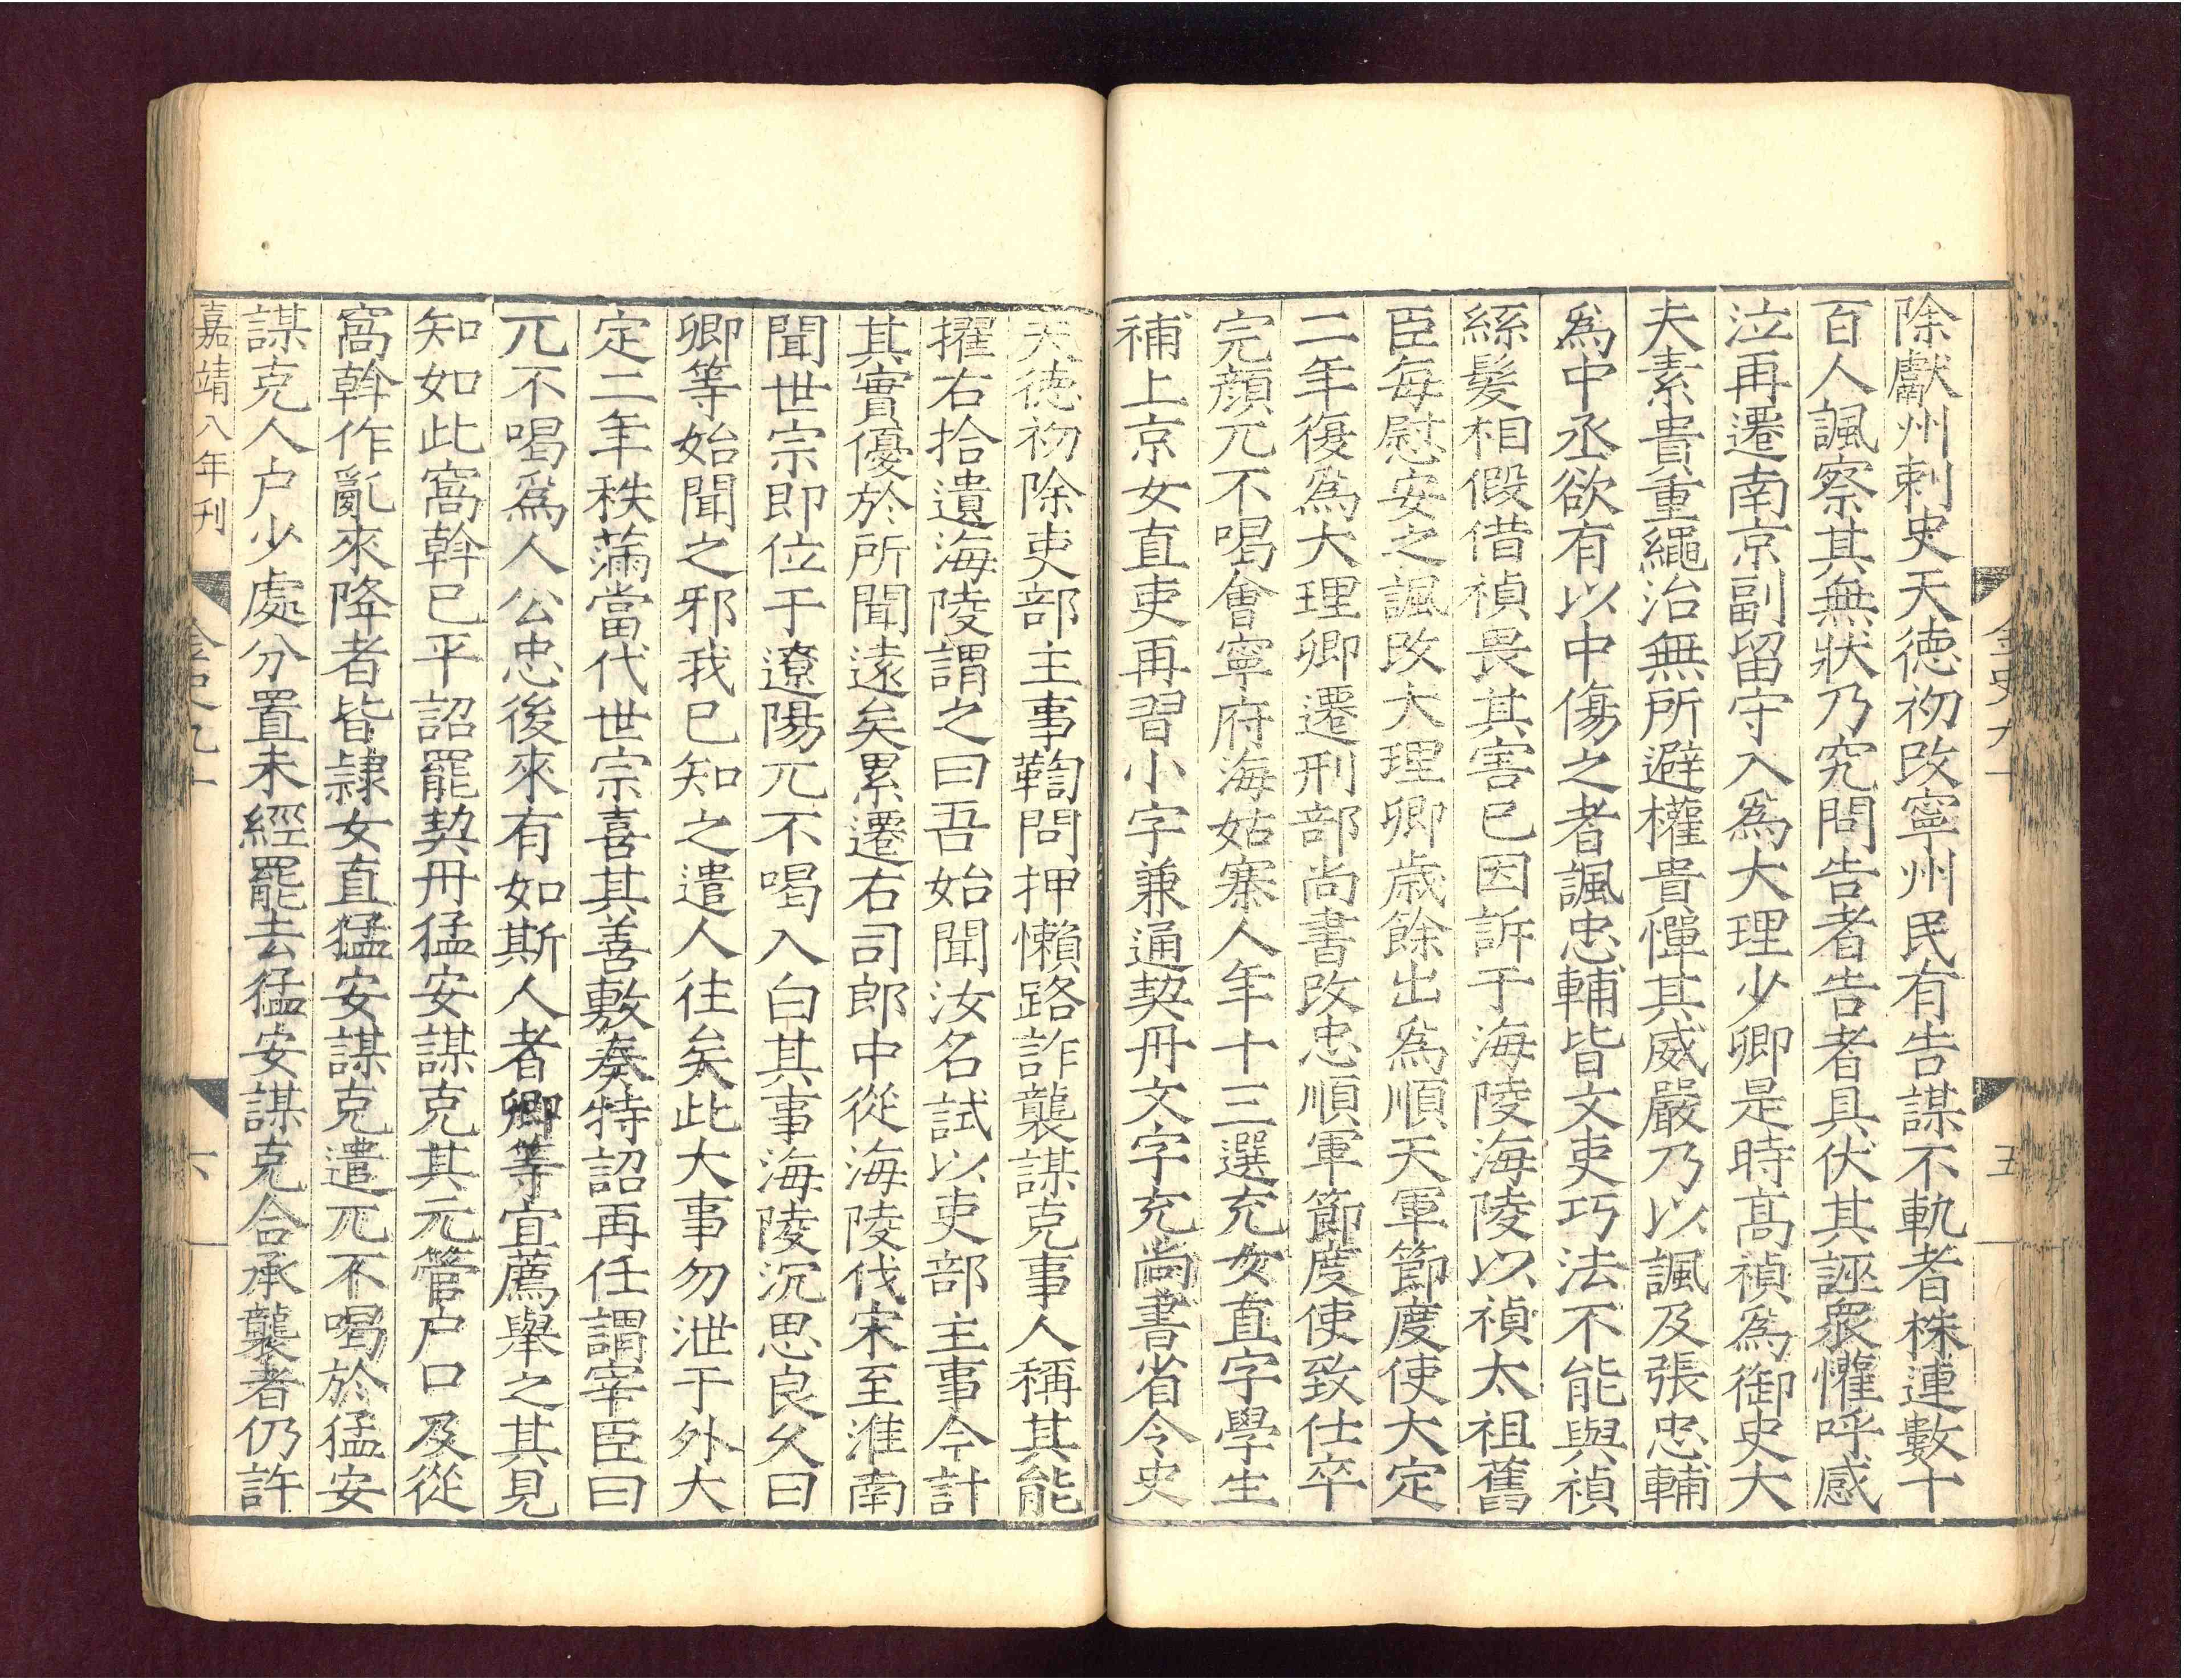 除獻州刺史天德初改寧州民有告謀不軌者株連數十
百人諷察其無狀乃究問告者告者具伏其誣衆懽呼感
泣再遷南京副留守入爲大理少卿是時高禎爲御史大
夫素貴重繩治無所避權貴憚其威嚴乃以諷及張忠輔
爲中丞欲有以中傷之者諷忠輔皆文吏巧法不能與禎
絲髮相假借禎畏其害已因訴于海陵海陵以禎太祖舊
臣每慰安之諷改大理卿歲餘出爲順天軍節度使大定
二年復爲大理卿遷刑部尚書改忠順軍節度使致仕卒
完顏兀不喝會寧府海姑寨人年十三選充女直字學生
補上京女直吏再習小字兼通契丹文字充尚書省令史
天德初除吏部主事鞫問押懶路詐襲謀克事人稱其能
擢右拾遺海陵謂之曰吾始聞汝名試以吏部主事今計
其實優於所聞遠矣累遷右司郎中從海陵伐宋至淮南
聞世宗即位于遼陽兀不喝入白其事海陵沉思良久曰
卿等始聞之邪我已知之遣人往矣此大事勿泄于外大
定二年秩滿當代世宗喜其善敷奏特詔再任謂宰臣曰
兀不喝爲人公忠後來有如斯人者卿等宜薦舉之其見
知如此窩斡已平詔罷契丹猛安謀克其元管户口及從
窩斡作亂來降者皆隷女直猛安謀克遣兀不喝於猛安
謀克人户少處分置未經罷去猛安謀克合承襲者仍許
嘉靖八年刊
金史九十
五
六